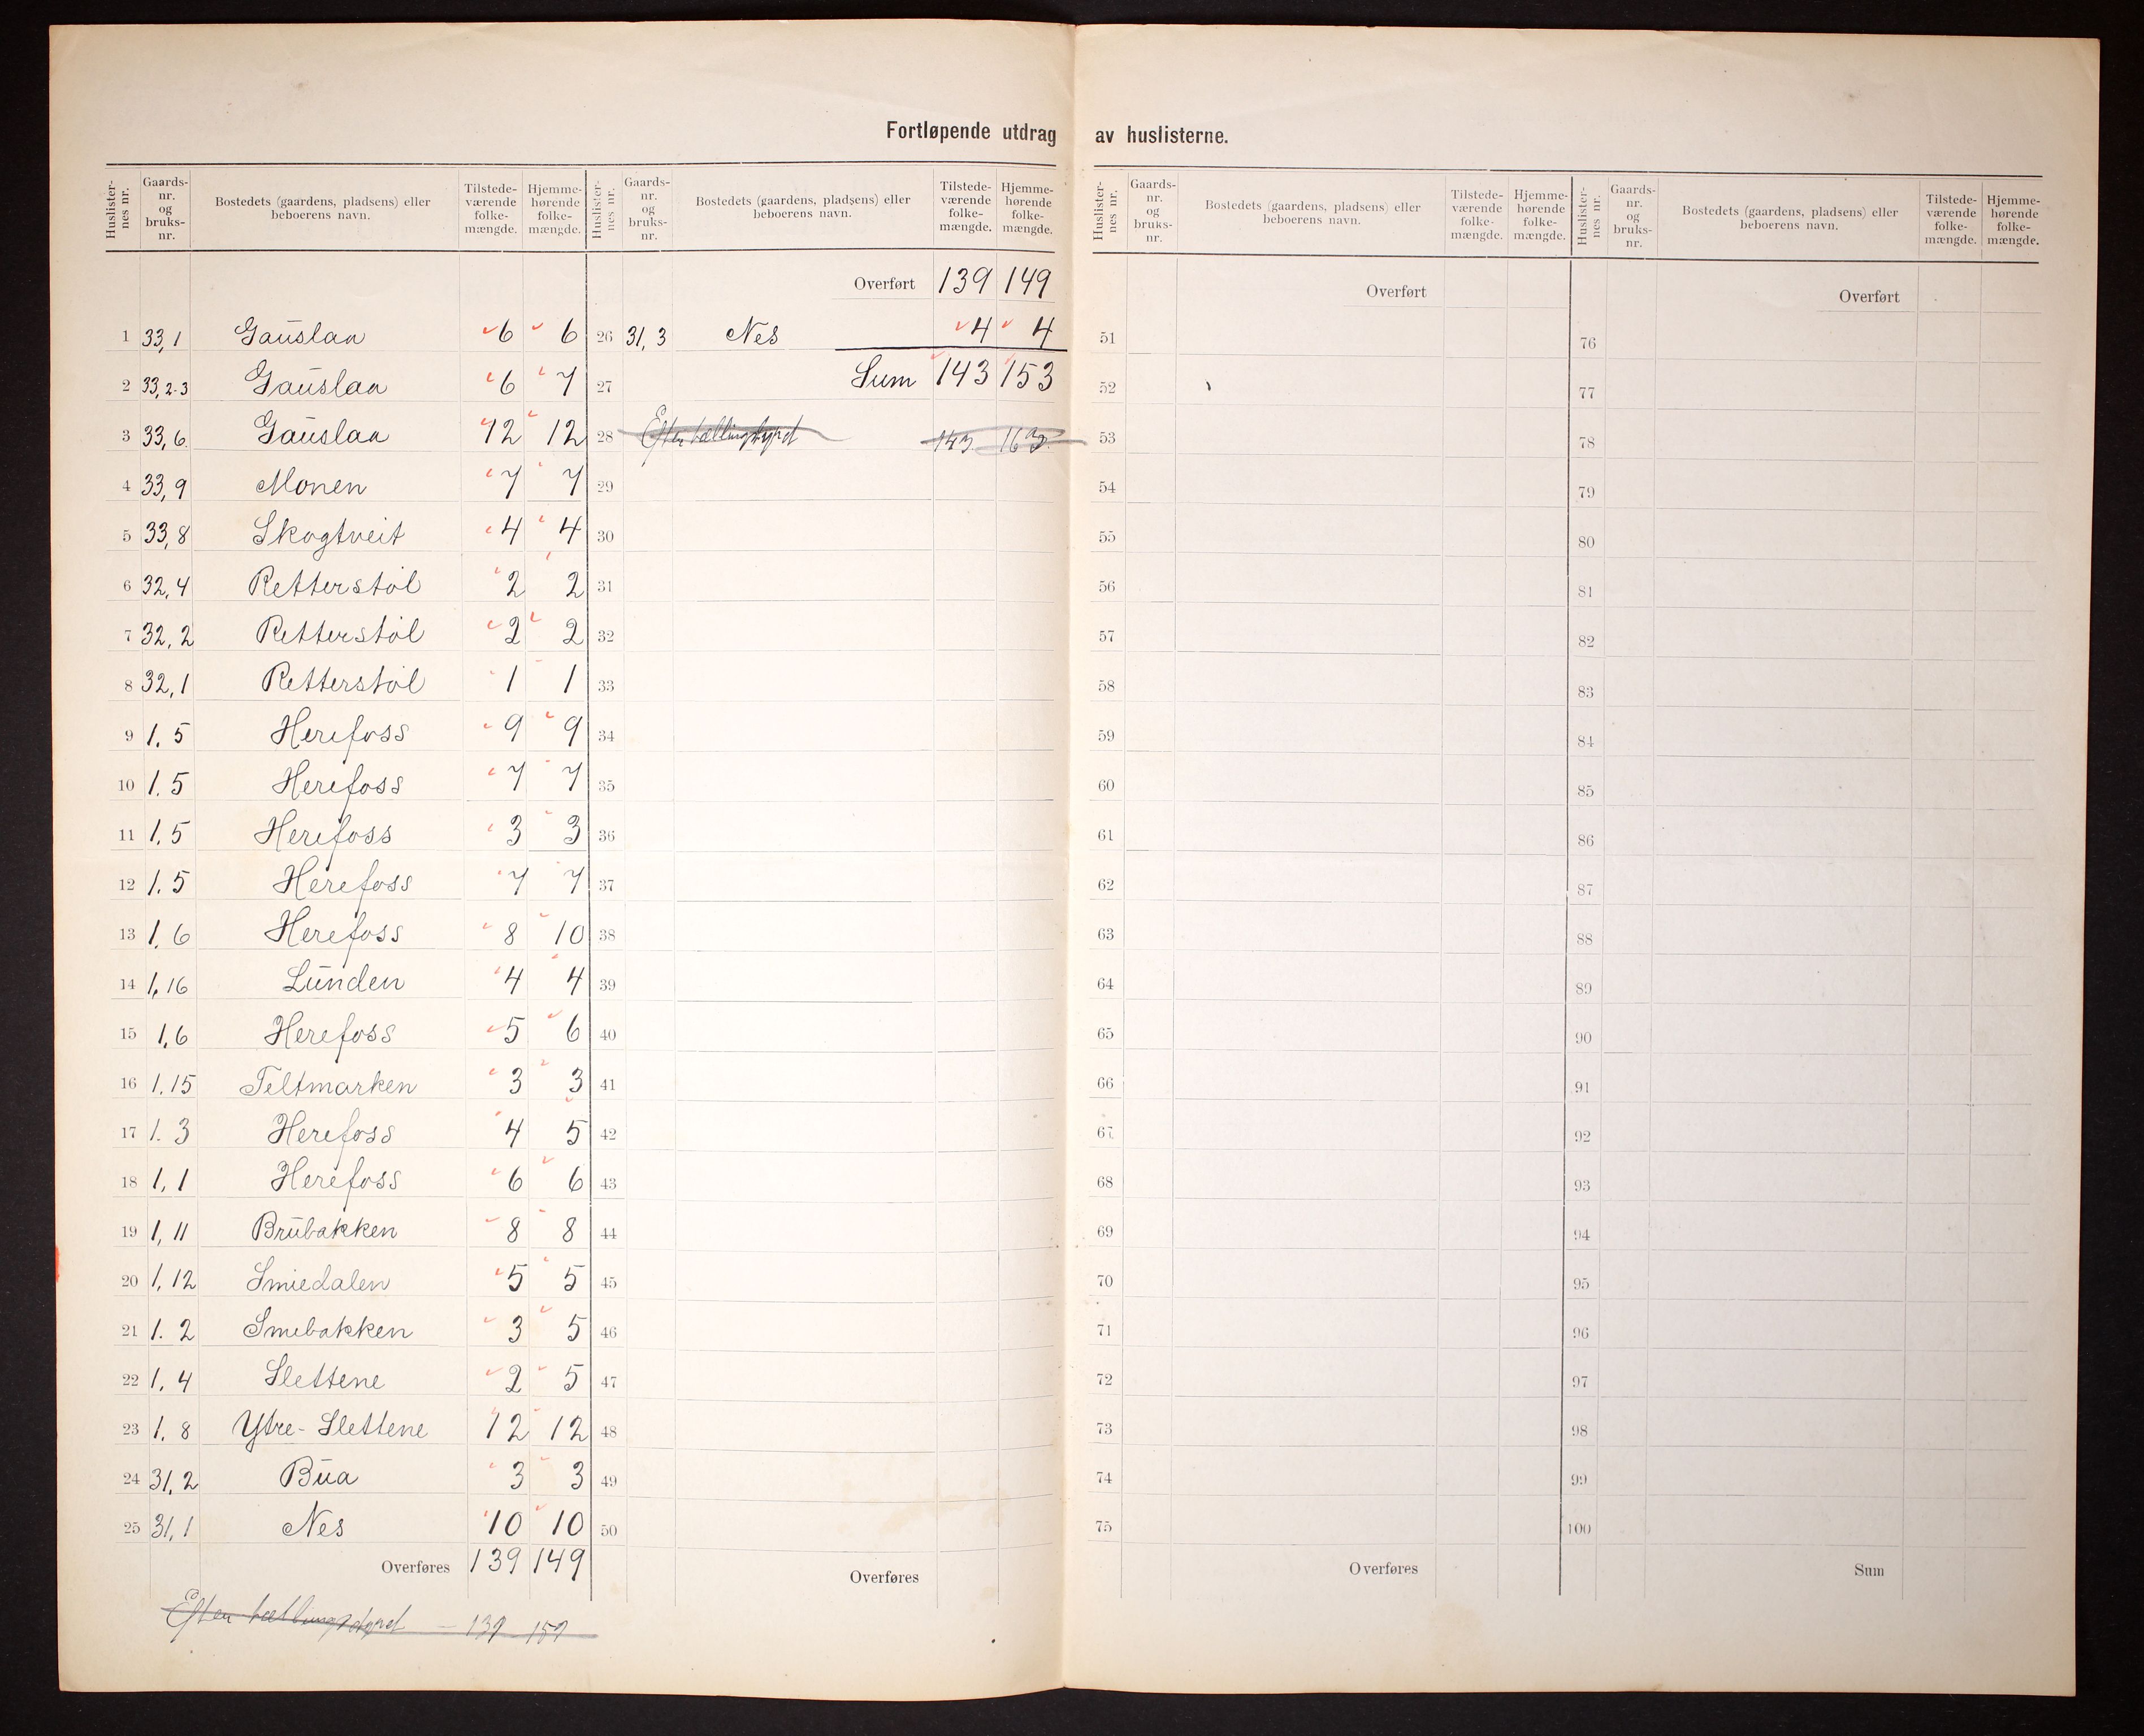 Fortløpende utdrag av huslisterne.
Huslister-nes nr. | Gaards-nr. og bruks-nr. | Bostedets (gaardens, pladsens) eller beboerens navn. | Tilstede-værende folke-mængde. | Hjemme-hørende folke-mængde.
1 33,1 Gauslaa 6 6
2 33,2-3 Gauslaa 6 7
3 33,6. Gauslaa 12 12
4 33,9 Monen 7 7
5 33,8 Skogtveit 4 4
6 32,4 Retterstøl 2 2
7 32,2 Retterstøl 2 2
8 32,1 Retterstøl 1 1
9 1.5 Herefoss 9 9
10 1.5 Herefoss 7 7
11 1.5 Herefoss 3 3
12 1.5 Herefoss 7 7
13 1.6 Herefoss 8 10
14 1,16 Lunden 4 4
15 1,6 Herefoss 5 6
16 1.15 Teltmarken 3 3
17 1.3 Herefoss 4 5
18 1,1 Herefoss 6 6
19 1,11 Brubakken 8 8
20 1,12 Smiedalen 5 5
21 1.2 Smebakken 3 5
22 1.4 Slettene 2 5
23 1.8 Ytre-Slettene 12 12
24 31,2 Bua 3 3
25 31,1 Nes 10 10
Overføres 139 149
Efter tællingsdøgnet — 139 159
Huslister-nes nr. | Gaards-nr. og bruks-nr. | Bostedets (gaardens, pladsens) eller beboerens navn. | Tilstede-værende folke-mængde. | Hjemme-hørende folke-mængde.
Overført 139 149
26 31,3 Nes 4 4
27 Sum 143 153
28 Efter tællingsdøgnet 143 163
29
30
31
32
33
34
35
36
37
38
39
40
41
42
43
44
45
46
47
48
49
50
Overføres
Huslister-nes nr. | Gaards-nr. og bruks-nr. | Bostedets (gaardens, pladsens) eller beboerens navn. | Tilstede-værende folke-mængde. | Hjemme-hørende folke-mængde.
Overført
51
52
53
54
55
56
57
58
59
60
61
62
63
64
65
66
67
68
69
70
71
72
73
74
75
Overføres
Huslister-nes nr. | Gaards-nr. og bruks-nr. | Bostedets (gaardens, pladsens) eller beboerens navn. | Tilstede-værende folke-mængde. | Hjemme-hørende folke-mængde.
Overført
76
77
78
79
80
81
82
83
84
85
86
87
88
89
90
91
92
93
94
95
96
97
98
99
100
Sum